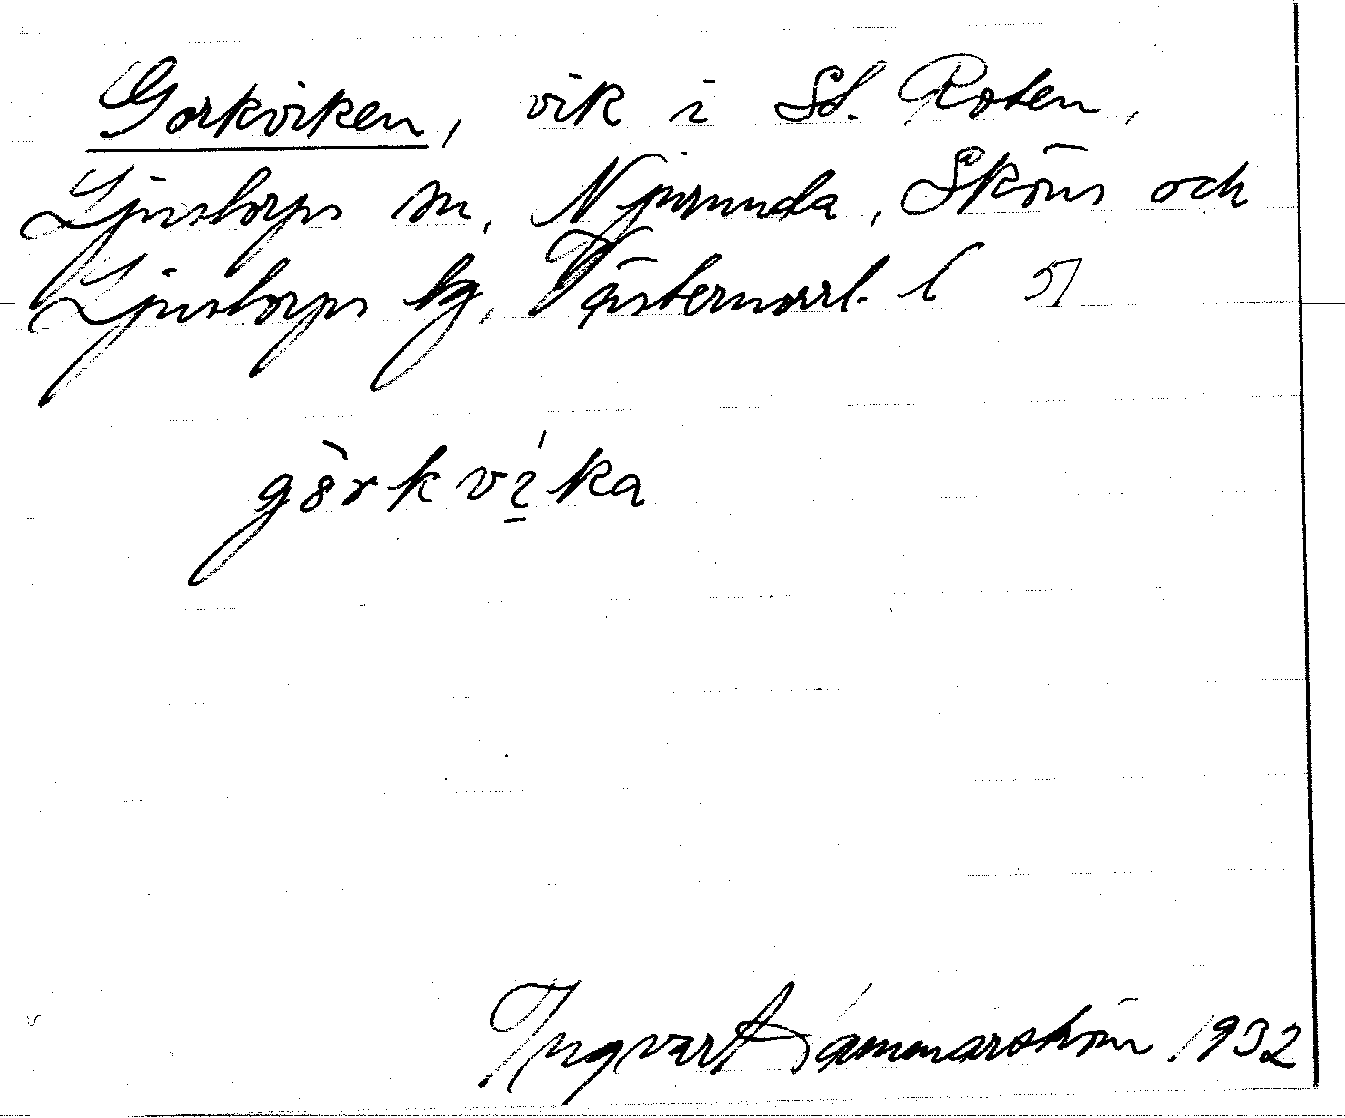 Gorkviken, vik i St. Roten,
Ljustorps sn, Njurunda, Sköns och
Ljustorps tg, Västernorrl. l 51
gȯ̀rkvı̱́ka
Ingvart Hammarström 1932